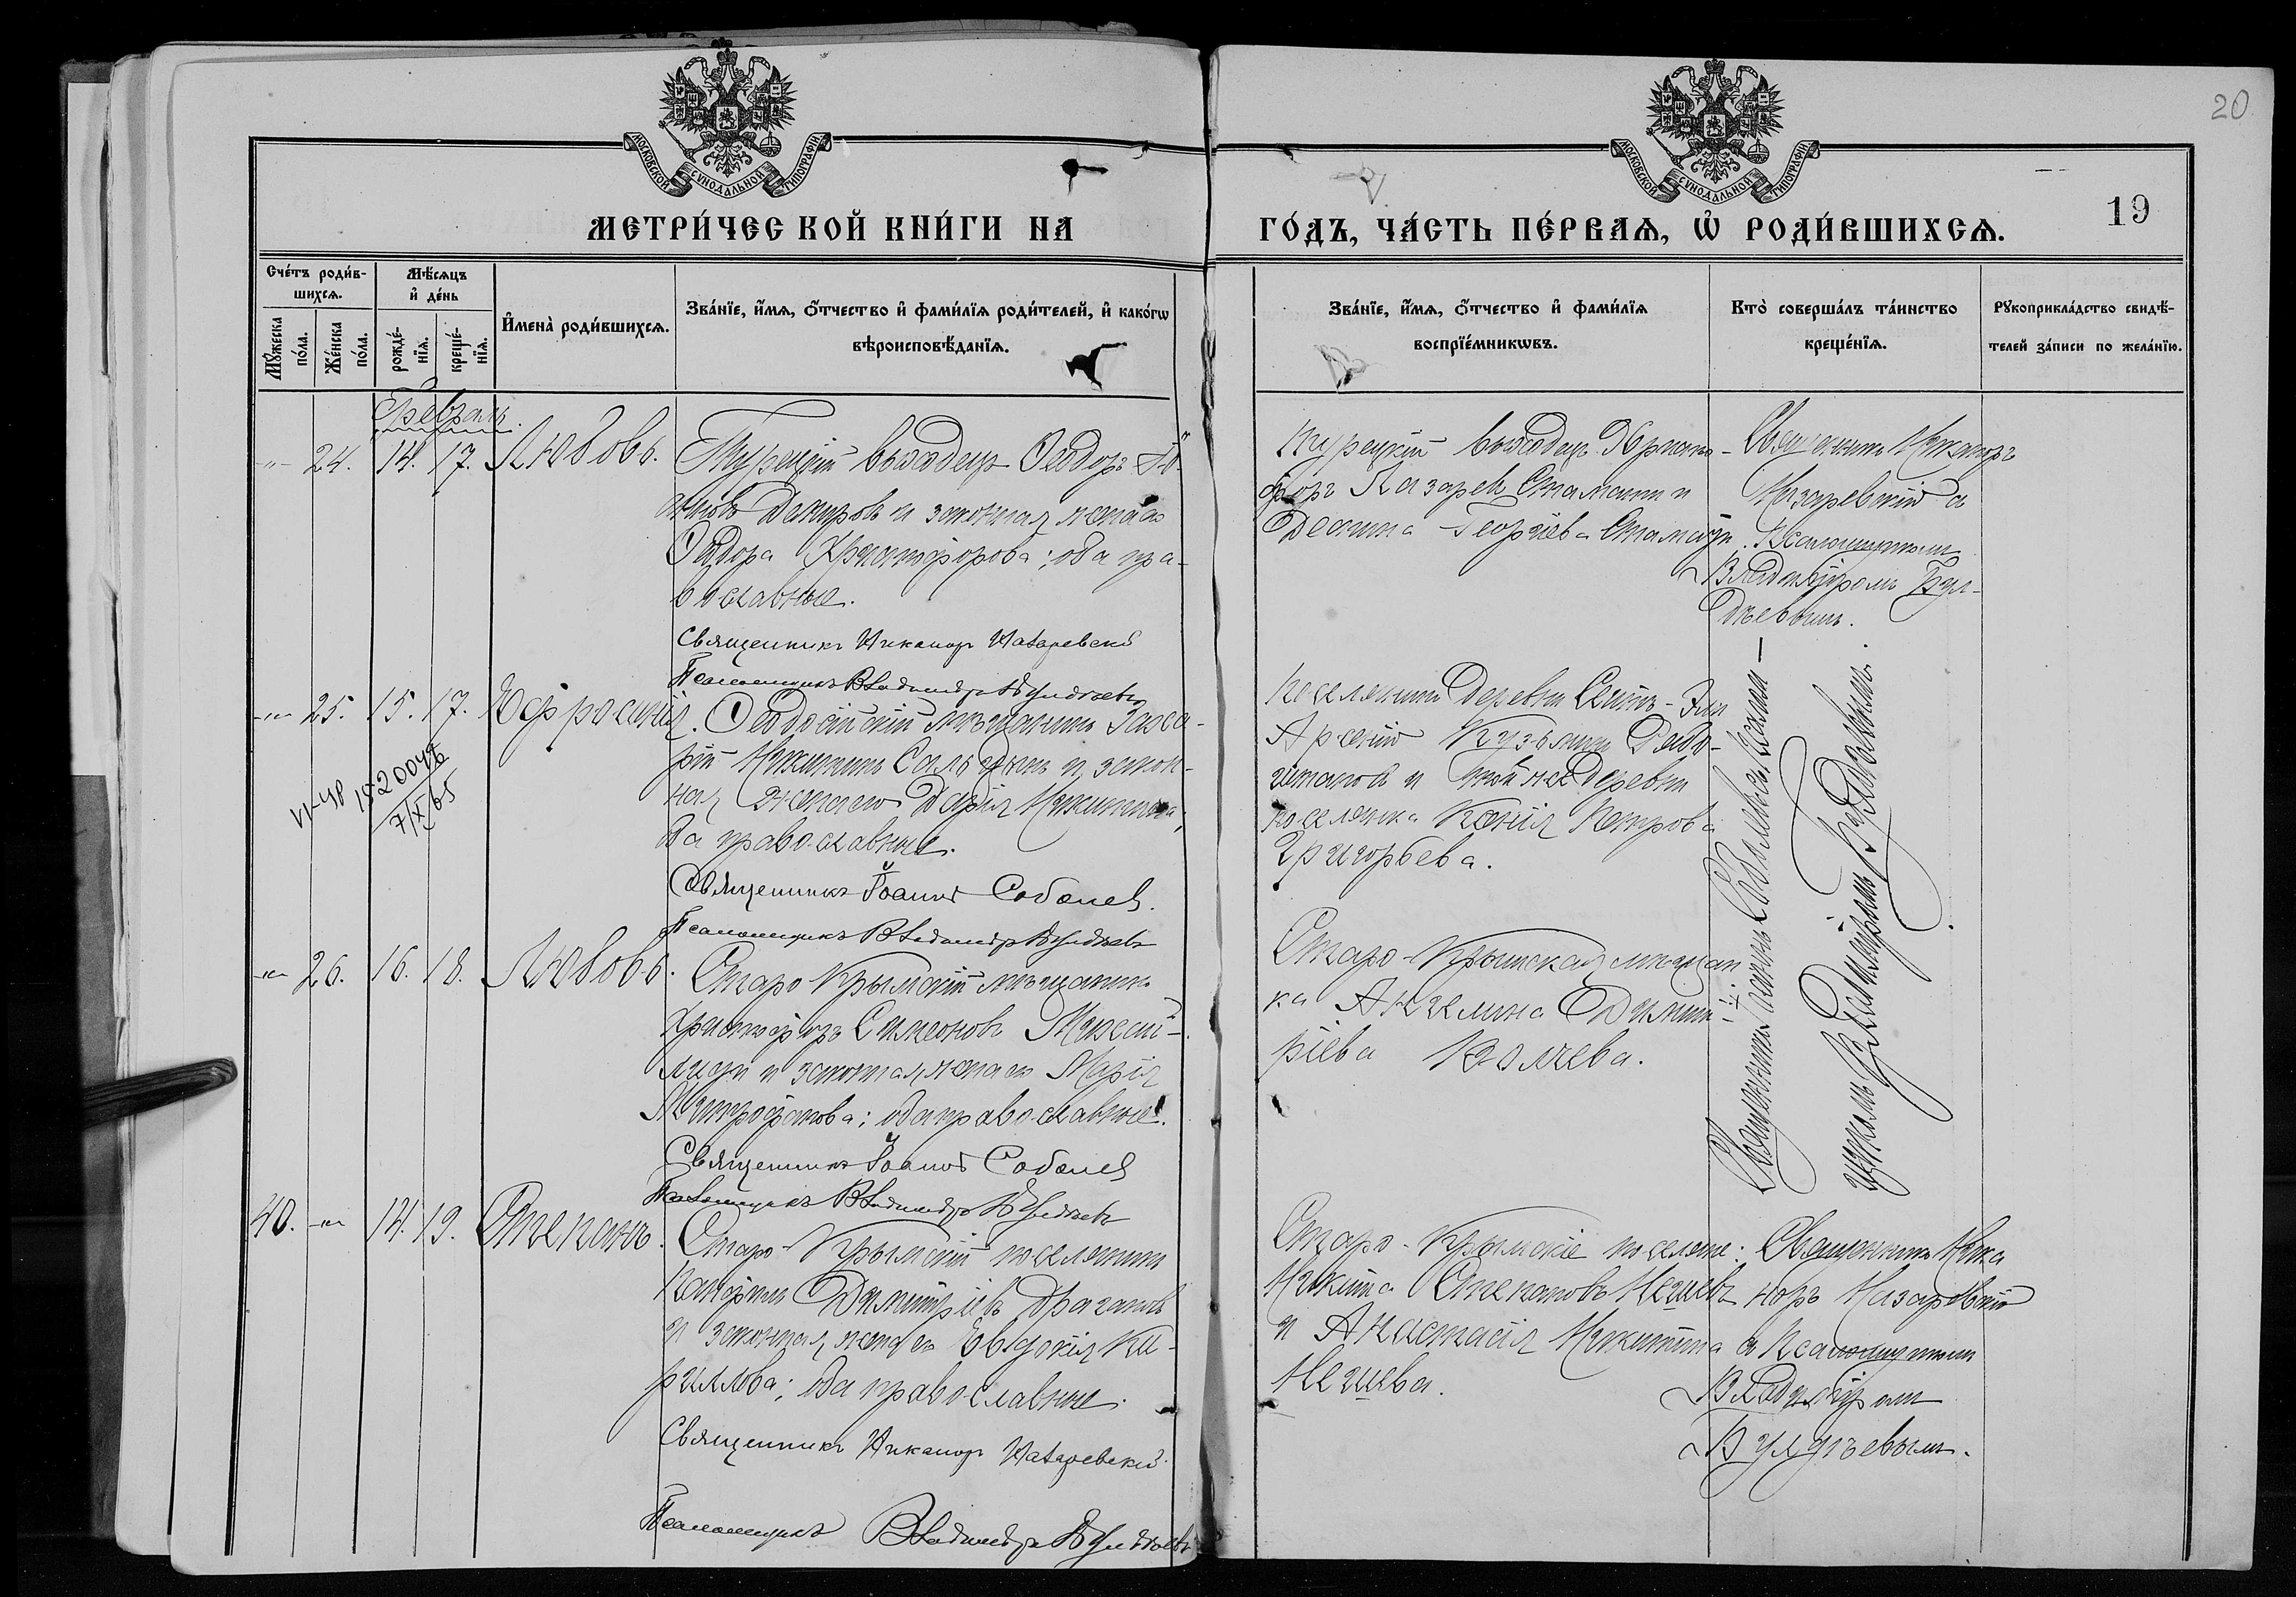 20
МОСКОВСКОЙ СѴНОДАЛЬНОЙ ТИПОГРАФІИ
МОСКОВСКОЙ СѴНОДАЛЬНОЙ ТИПОГРАФІИ
19
МЕТРИ́ЧЕСКОЙ КНИ́ГИ НА
ГО́ДЪ, ЧА́СТЬ ПЕ́РВАѦ, Ѡ҆ РОДИ́ВШИХСѦ.
Сче́тъ роди́в-
шихсѧ.
Мꙋ́жеска по́ла.
Же́нска по́ла.
Мѣ́сѧцъ
и҆ де́нь
рожде́-нїѧ.
креще́-нїѧ.
И҆мена̀ роди́вшихсѧ.
Зва́нїе, и҆́мѧ, ѻ҆́тчество и҆ фами́лїѧ роди́телей, и҆ како́гѡ
вѣроисповѣ́данїѧ.
Зва́нїе, и҆́мѧ, ѻ҆́тчество и҆ фами́лїѧ
воспрїе́мникѡвъ.
Кто̀ соверша́лъ та́инство
креще́нїѧ.
Рꙋкоприкла́дство свидѣ́-
телей за́писи по жела́нїю.
Февраль.
-"- 24. 14. 17. Любовь.
Турецкій выходецъ Ѳеодоръ Іо-
анновъ и законная жена его
Ѳеодора Христофорова; оба пра-
вославные.
Священникъ Никаноръ Назаревскій
Псаломщикъ Владиміръ Булдѣевъ
Турецкій выходецъ Христо-
форъ Лазаревъ Стамати и
Георгіева Стамати.
Священникъ Никаноръ
Назаревскій съ
Псаломщикомъ
Владиміромъ Бул-
дѣевымъ.
-"- 25. 15. 17. Ефросинія.
Ѳеодосійскій мѣщанинъ Заха-
рій Никитинъ и закон-
ная жена его Дарія Никитина;
оба православные.
Священникъ Іоаннъ Соболев.
Псаломщикъ Владиміръ Булдѣевъ
II-ЧР 1520046
7/X 65
Поселянинъ деревни Сеитъ-Эли
Арсеній Кузьминъ
и той же деревни
поселянка Ксенія Петрова
Григорьева.
Священникъ Іоаннъ Соболевъ съ Псалом-
щикомъ Владиміромъ Булдѣевымъ.
-"- 26. 16. 18. Любовь.
Старо-Крымскій мѣщанинъ
Христофоръ Симеоновъ
и законная жена его Марія
Митрофанова; оба православные.
Священникъ Іоаннъ Соболев
Псаломщикъ Владиміръ Булдѣевъ
Старо-Крымская мѣщан-
ка Ангелина Димит-
ріева Колчева.
40. -"- 14. 19. Степанъ.
Старо-Крымскій поселянинъ
Панфилъ Димитріевъ Драгановъ
и законная жена его Евдокія Ки-
риллова; оба православные.
Священникъ Никаноръ Назаревскій
Псаломщикъ Владиміръ Булдѣевъ
Старо-Крымскіе поселяне:
Никита Степановъ Нецевъ
и Анастасія Никитина
Нецева.
Священникъ Ника
норъ Назаревскій
съ Псаломщикомъ
Владиміромъ
Булдѣевымъ.